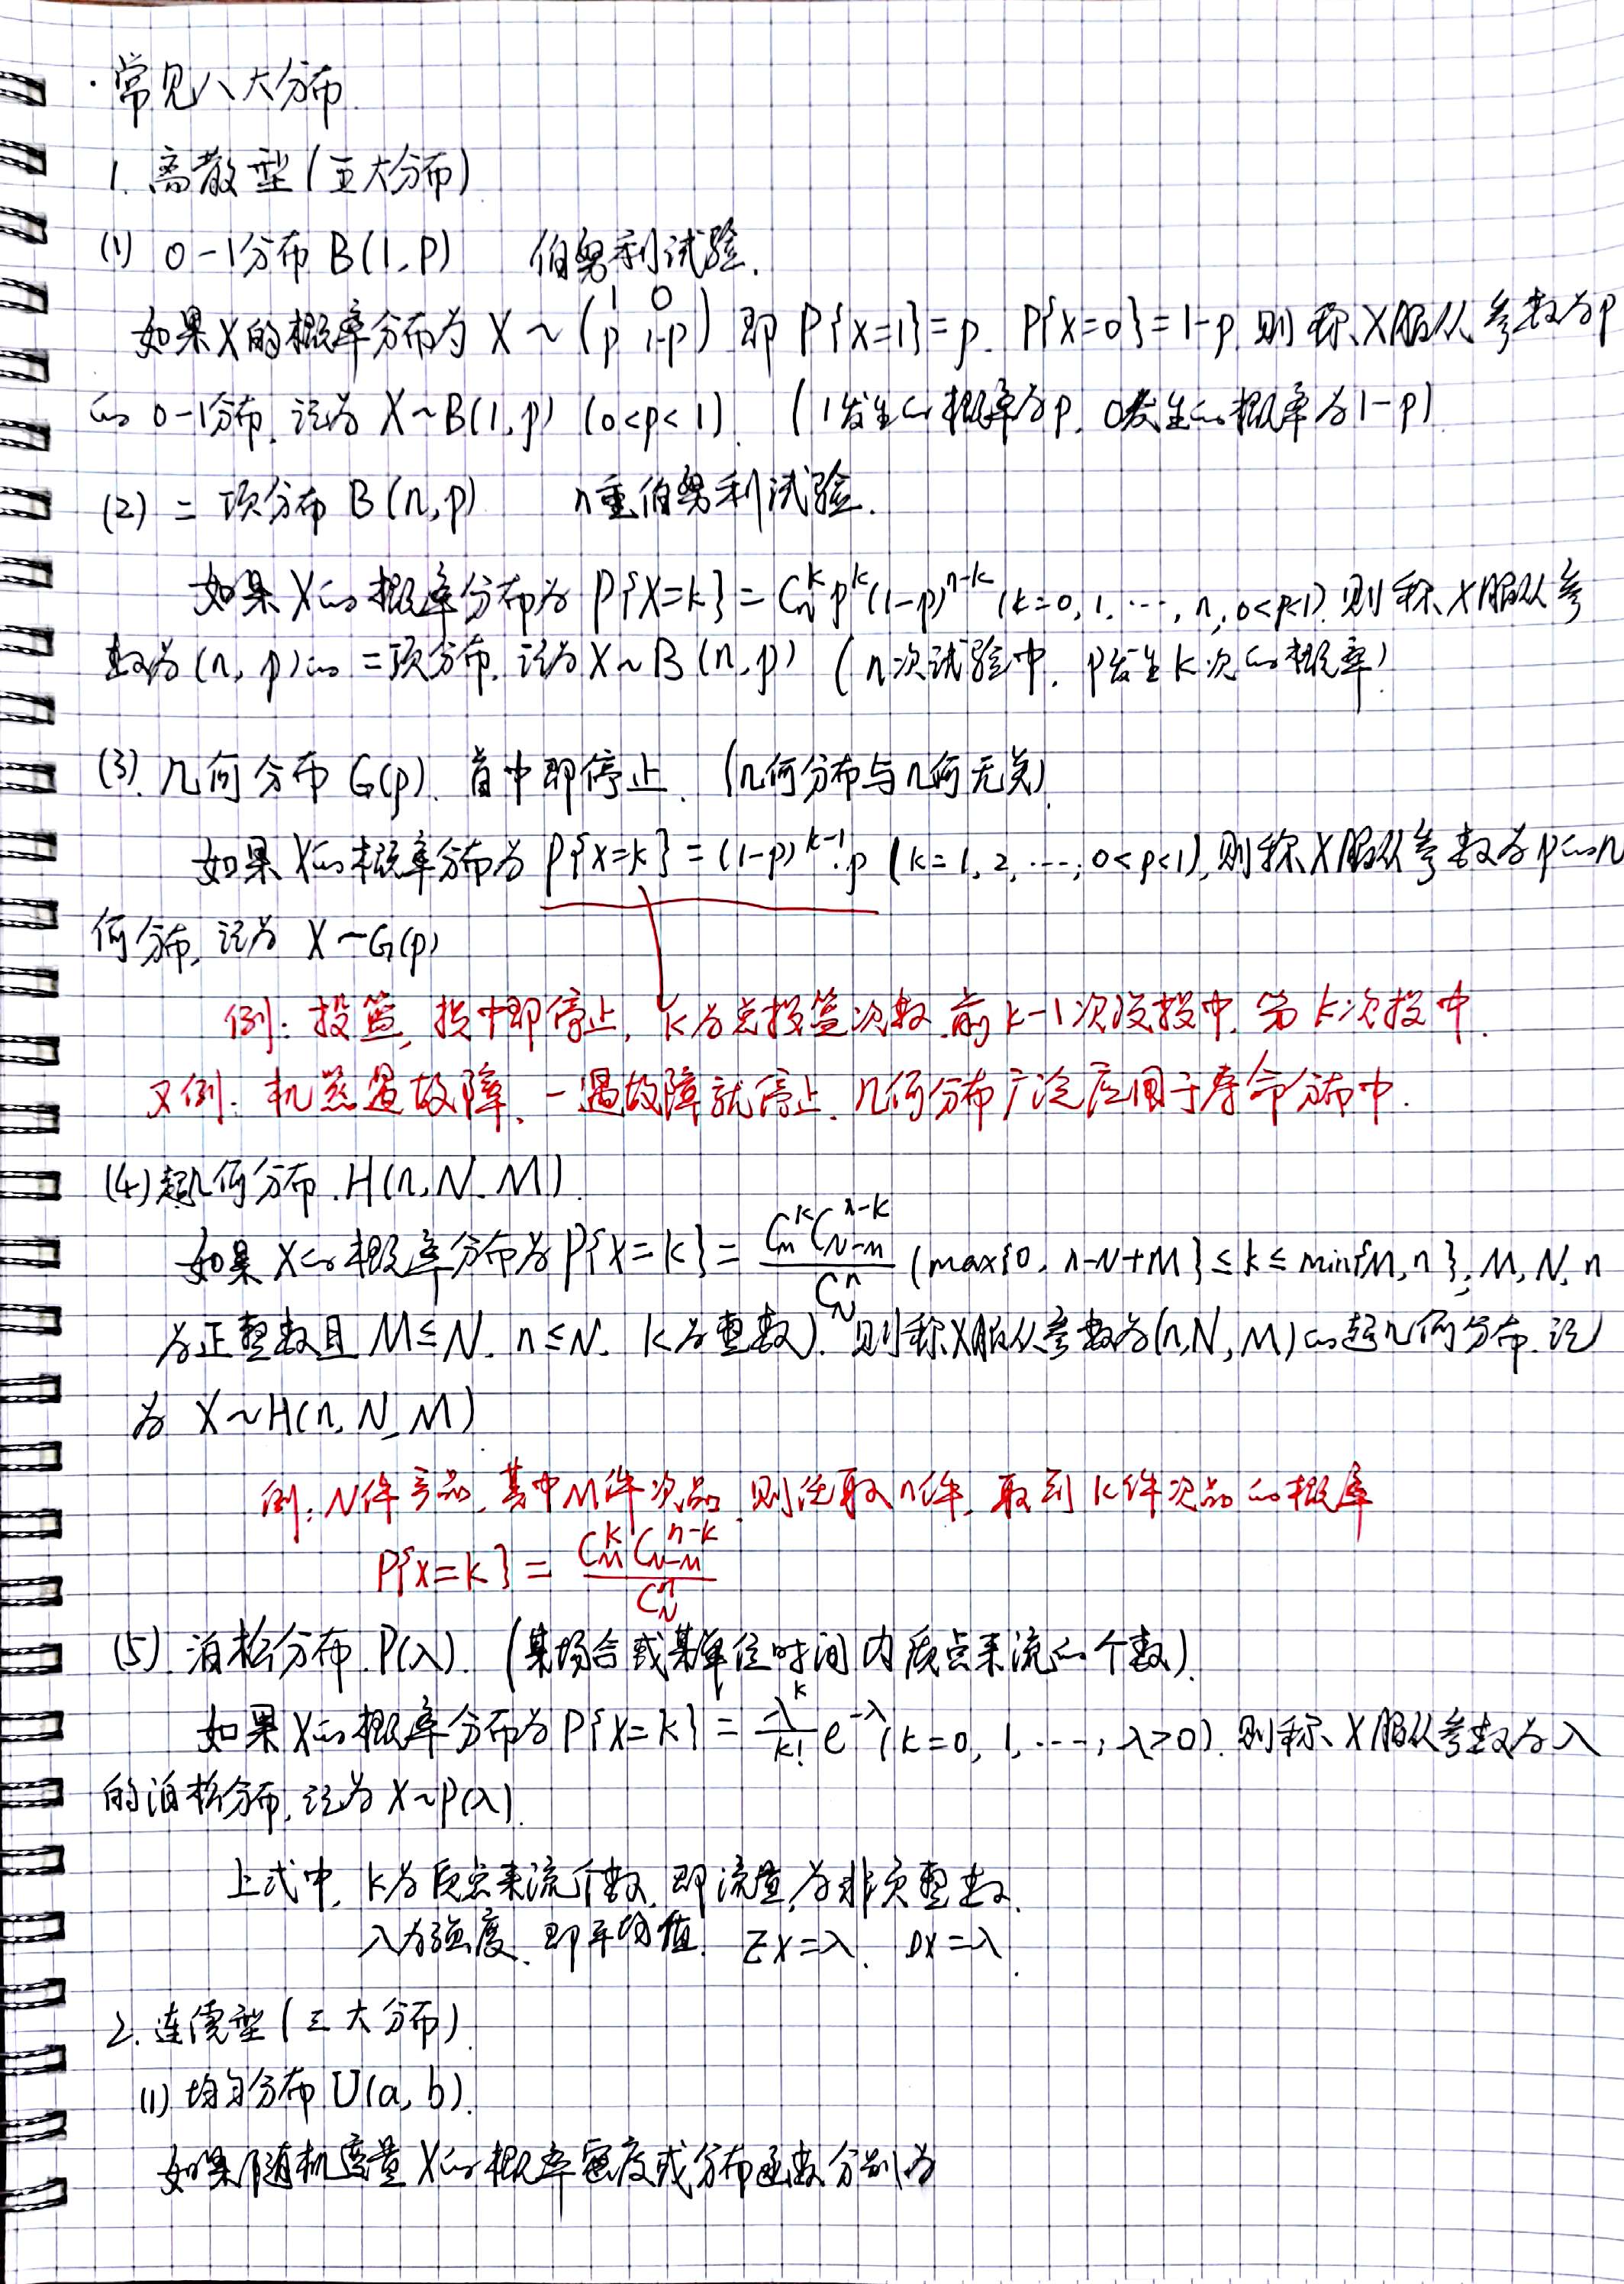 ·常见八大分布.
1. 离散型(五大分布)
(1) 0-1分布 B(1,p) 伯努利试验.
如果X的概率分布为 X ~ (1 0; p 1-p) 即 P{X=1}=p. P{X=0}=1-p. 则称X服从参数为p
的0-1分布. 记为 X~B(1,p) (0<p<1). (1发生的概率为p, 0发生的概率为1-p)
(2) 二项分布 B(n,p) n重伯努利试验.
如果X的概率分布为 P{X=k} = C_n^k p^k (1-p)^{n-k} (k=0,1,…,n, 0<p<1). 则称X服从参
数为(n,p)的二项分布. 记为 X~B(n,p) (n次试验中, p发生k次的概率)
(3). 几何分布 G(p). 首中即停止. (几何分布与几何无关)
如果X的概率分布为 P{X=k} = (1-p)^{k-1}·p (k=1,2,…; 0<p<1), 则称X服从参数为p的几
何分布, 记为 X~G(p)
例: 投篮, 投中即停止, k为总投篮次数. 前k-1次没投中. 第k次投中.
又例: 机器遇故障, 一遇故障就停止. 几何分布广泛应用于寿命分布中.
(4) 超几何分布. H(n,N,M).
如果X的概率分布为 P{X=k} = C_M^k C_{N-M}^{n-k} / C_N^n (max{0, n-N+M} ≤ k ≤ min{M,n}; M,N,n
为正整数且 M≤N. n≤N. k为整数). 则称X服从参数为(n,N,M)的超几何分布. 记
为 X~H(n,N,M)
例: N件产品, 其中M件次品, 则任取n件, 取到k件次品的概率
P{X=k} = C_M^k C_{N-M}^{n-k} / C_N^n
(5) 泊松分布. P(λ). (某场合或某单位时间内质点来流的个数).
如果X的概率分布为 P{X=k} = λ^k/k! e^{-λ} (k=0,1,…; λ>0). 则称X服从参数为λ
的泊松分布, 记为 X~P(λ).
上式中, k为质点来流个数, 即流量, 为非负整数.
λ为强度, 即平均值. EX=λ. DX=λ.
2. 连续型(三大分布)
(1) 均匀分布 U(a,b).
如果随机变量X的概率密度或分布函数分别为